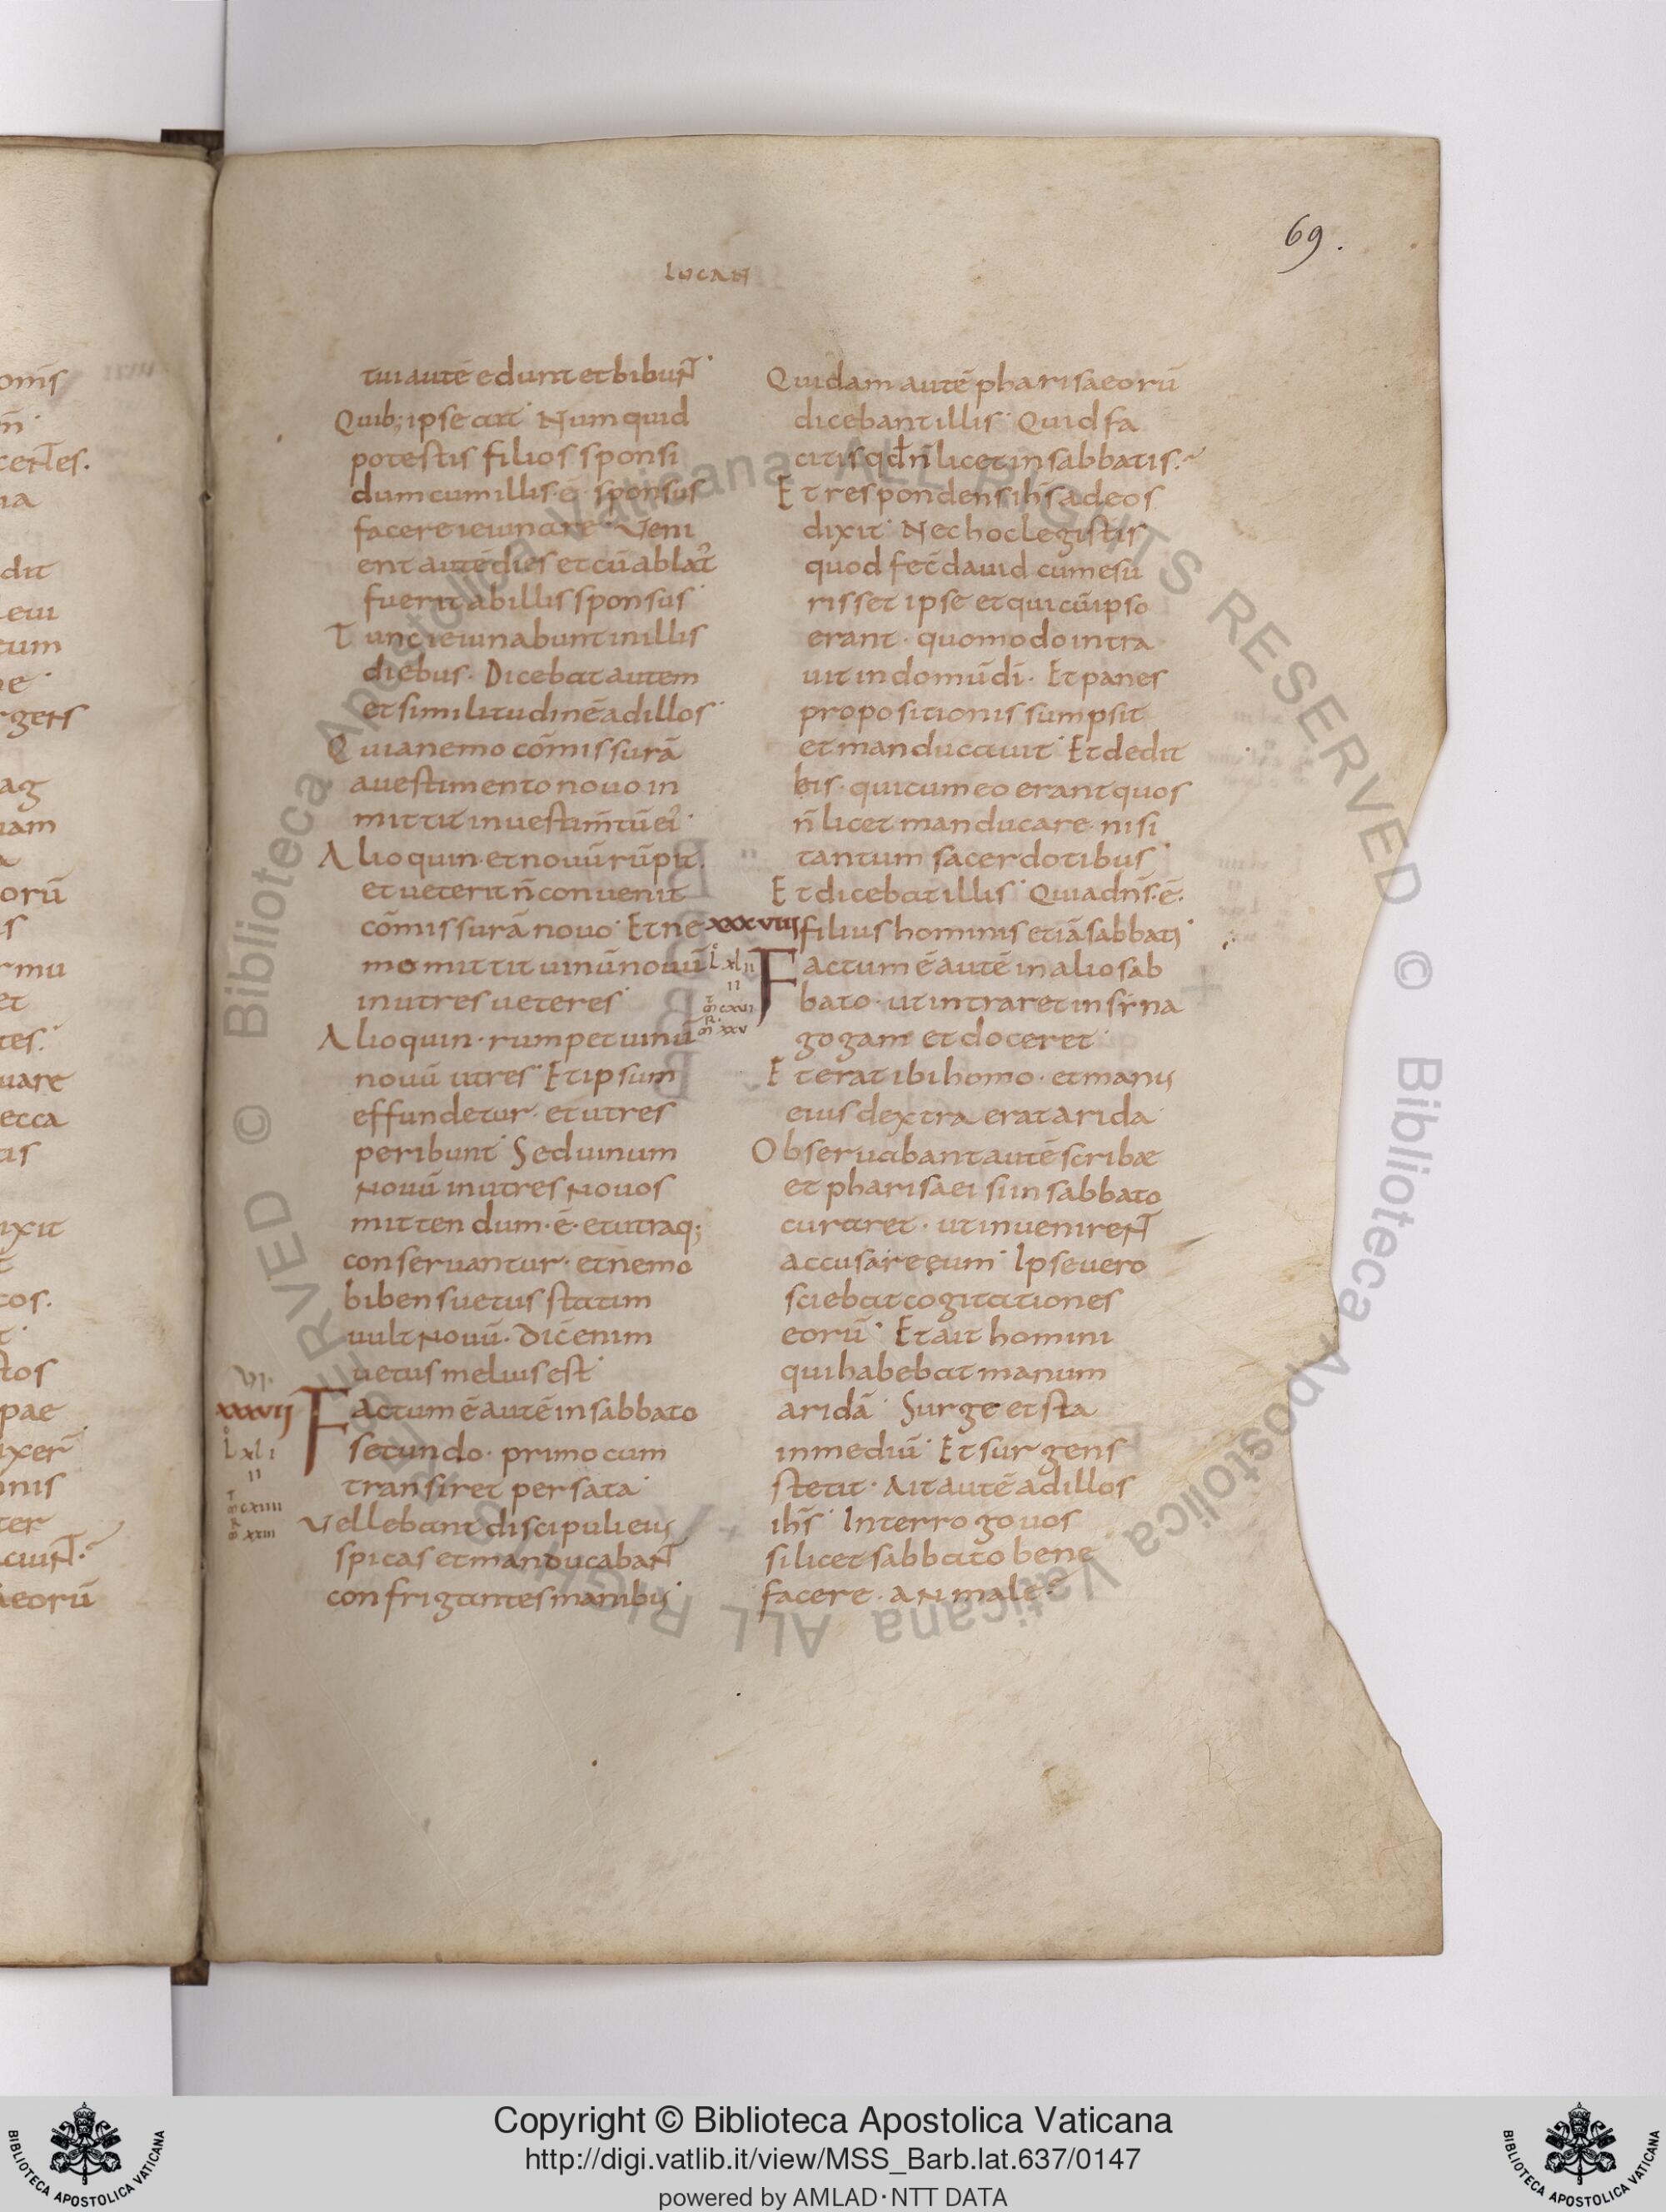 69.
LUCAN
tui autē edunt et bibunt·
Quib; ipse ait· Numquid
potestis filios sponsi
dum cum illis·ē· sponsus
facere ieiunare· Veni
ent autē dies et cū ablat᷒
fuerit ab illis sponsus·
Tunc ieiunabunt in illis
diebus· Dicebat autem
et similitudinē ad illos·
Quia nemo cōmissurā
a uestimento nouo in
mittit in uestim̄tū uet᷒·
Alioquin· et nouū rūpit·
et ueteri n̄ conuenit
cōmissurā nouo· Et ne
mo mittit uinū nouū
in utres ueteres·
Alioquin· rumpet uinū
nouū utres· Et ipsum
effundetur· et utres
peribunt· Sed uinum
nouū in utres nouos
mittendum·ē· et utraq;
conseruantur· et nemo
bibens uetus statim
uult nouū· Dic̄ enim
uetus melius est·
VI·
xxxvij
Factum ē autē in sabbato
L xli
II
secundo· primo cum
transiret per sata·
cxiiii
xxiii
Vellebant discipuli eius
spicas et manducabant
confrigantes manibus·
Quidam autē pharisaeorū
dicebant illis· Quid fa
citis qđ n̄ licet in sabbatis·
Et respondens ih̄s ad eos
dixit· Nec hoc legistis
quod fec̄ dauid cum esu
risset ipse et qui cū ipso
erant· quomodo intra
uit in domū dī· Et panes
propositionis sumpsit
et manducauit· Et dedit
his· qui cum eo erant quos
n̄ licet manducare· nisi
tantum sacerdotibus·
Et dicebat illis· Quia dn̄s·ē·
filius hominis etiā sabbati·
xxxviij
L xlii
II
cxvi
xxv
Factum ē autē in alio sab
bato· ut intraret in sina
gogam et doceret·
Et erat ibi homo· et manus
eius dextra erat arida·
Obseruabant autē scribæ
et pharisaei si in sabbato
curaret· ut inuenirent
accusare eum· Ipse uero
sciebat cogitationes
eorū· Et ait homini
qui habebat manum
aridā· Surge et sta
in mediū· Et surgens
stetit· Ait autē ad illos
ih̄s· Interrogo uos
si licet sabbato bene
facere· an male·
Copyright © Biblioteca Apostolica Vaticana
http://digi.vatlib.it/view/MSS_Barb.lat.637/0147
powered by AMLAD·NTT DATA